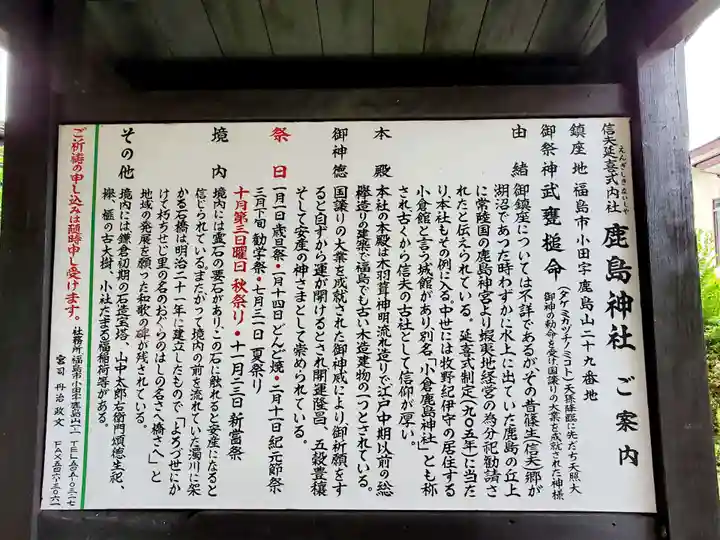 信夫延喜式内社 鹿島神社 ご案内
えんぎしきないしゃ
鎮座地 福島市小田字鹿島山二十九番地
御祭神 武甕槌命
(タケミカヅチノミコト)天孫降臨に先だち天照大
御神の勅命を受け国譲りの大業を成就された神様
由緒 御鎮座については不詳であるが、その昔篠生(信夫)郷が
湖沼であつた時わずかに水上に出ていた鹿島の丘上
に常陸国の鹿島神宮より蝦夷地経営の為分祀勧請さ
れたと伝えられている。延喜式制定(九〇五年)に当た
り本社もその例に入る。中世には牧野紀伊守の居住する
小倉館と言う城館があり別名「小倉鹿島神社」とも称
され古くから信夫の古社として信仰が厚い。
本殿 本社の本殿は木羽葺神明流れ造りで江戸中期以前の総
欅造りの建築で福島でも古い木造建物の一つとされている。
御神徳 国譲りの大業を成就された御神威により御祈願をす
ると自ずから運が開けるとされ開運隆昌、五穀豊穣
そして安産の神さまとして崇められている。
祭日 一月一日歳旦祭・一月十四日どんど焼・二月十一日紀元節祭
三月下旬 勧学祭・七月三一日 夏祭り
十月第三日曜日 秋祭り・十一月二三日 新嘗祭
境内 境内には霊石の要石があり、この石に触れると安産になると
信じられている。またかつて境内の前を流れていた濁川に架
かる石橋は明治二十一年に建立したもので「よろづせにか
けて朽ちせじ里の名のおぐらのはしの名さへ橋さへ」と
地域の発展を願った和歌の碑が残されている。
その他 境内には鎌倉初期の石造宝塔、山中太郎右衛門頌徳生祀、
欅、榧の古大樹、小社たまる福稲荷等がある。
ご祈祷の申し込みは随時申し受けます。
社務所 福島市小田字鹿島山一一 TEL 五四五-三一〇七
宮司 丹治政文 FAX 五四六-三〇六一